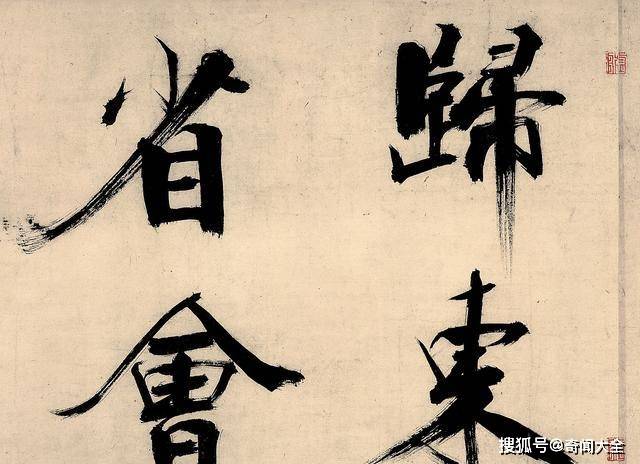 歸東
省會
搜狐号@奇闻大全